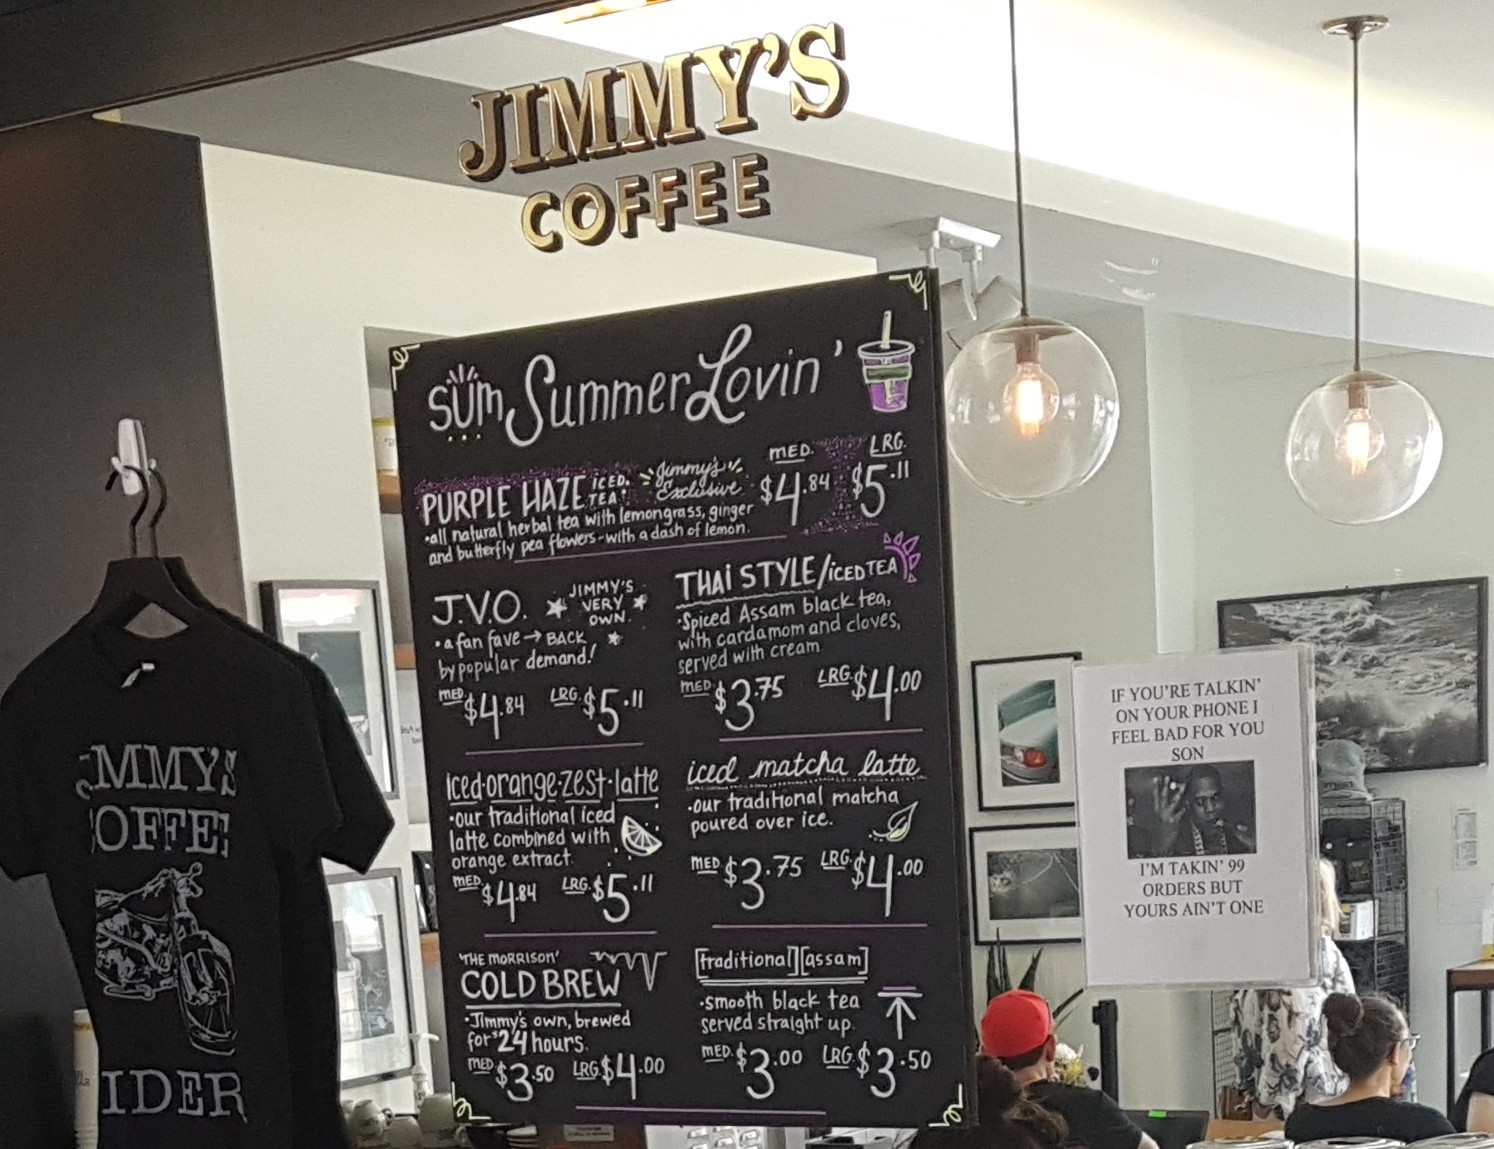 JIMMY'S
COFFEE
SUM Summer Lovin'
MED. LRG.
PURPLE HAZE ICED TEA! Jimmy's Exclusive $4.84 $5.11
•all natural herbal tea with lemongrass, ginger
and butterfly pea flowers-with a dash of lemon.
J.V.O. JIMMY'S VERY OWN.
•a fan fave → BACK
by popular demand!
MED $4.84 LRG. $5.11
THAI STYLE/ICED TEA
•Spiced Assam black tea,
with cardamom and cloves,
served with cream
MED $3.75 LRG. $4.00
iced·orange·zest·latte
•our traditional iced
latte combined with
orange extract.
MED. $4.84 LRG. $5.11
iced matcha latte
•our traditional matcha
poured over ice.
MED $3.75 LRG. $4.00
'THE MORRISON'
COLD BREW
•Jimmy's own, brewed
for 24 hours.
MED $3.50 LRG. $4.00
[traditional][assam]
•smooth black tea
served straight up.
MED. $3.00 LRG. $3.50
IF YOU'RE TALKIN'
ON YOUR PHONE I
FEEL BAD FOR YOU
SON
I'M TAKIN' 99
ORDERS BUT
YOURS AIN'T ONE
JIMMY'S
COFFEE
IDER